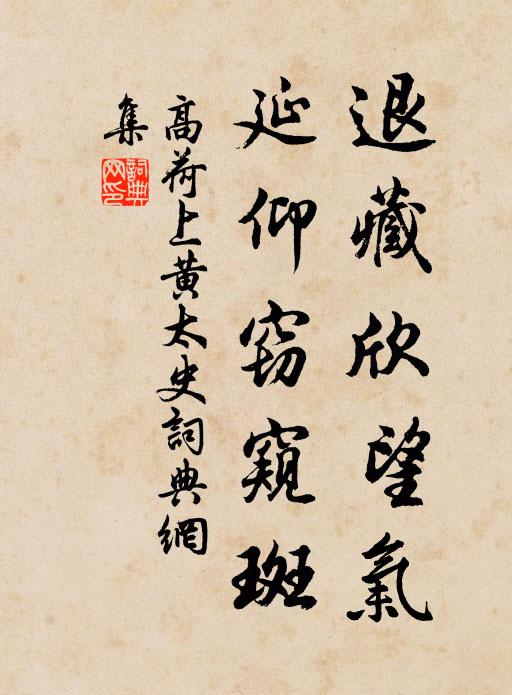 退藏欣望氣
延仰窃窺斑
高荷上黄太史詞典網
集
詞典網印